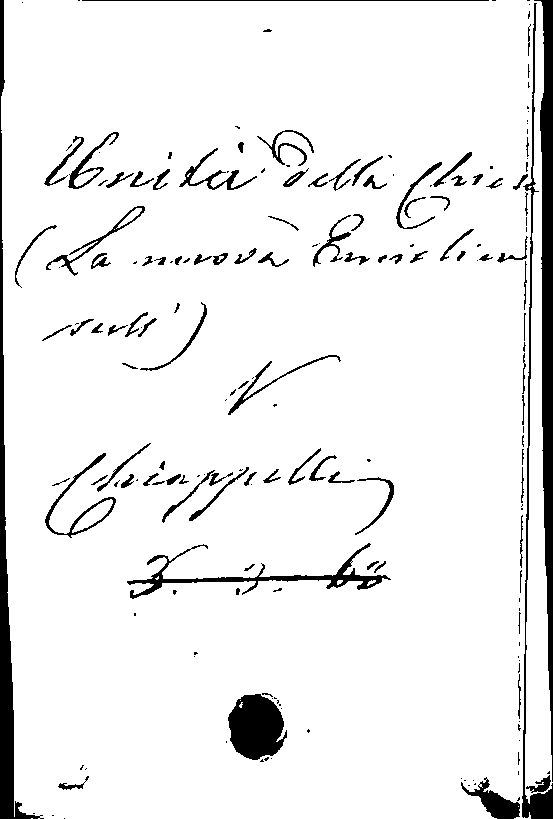 Unità della Chiesa
(La nuova Enciclica
sull')
V.
Chiappelli
3. 3. 60